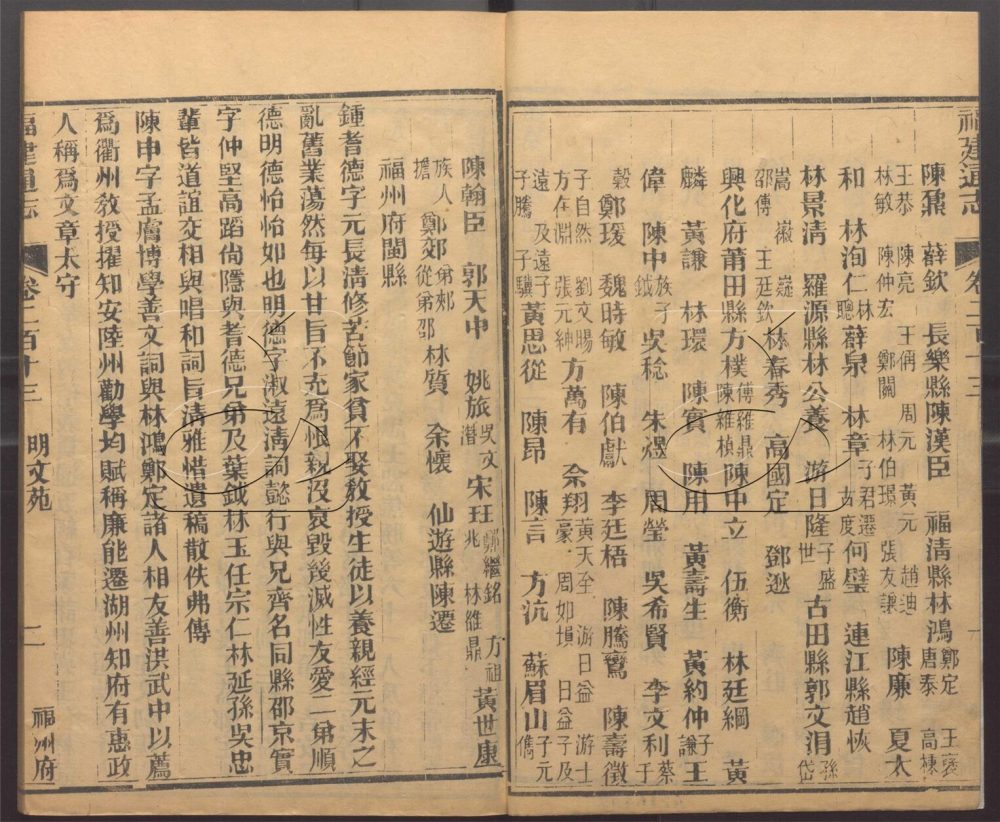 福建通志 卷二百十三 一
陳鼐 薛欽 長樂縣陳漢臣 福清縣林鴻 鄭定 王褒 唐泰 高棅
王恭 陳亮 王偁 周元 黃元 趙迪 林敏 陳仲宏 鄭關 林伯璟 張友謙 陳廉 夏太
和 林洵仁 林聰 薛泉 林章 子君遷 古度 何璧 連江縣趙恢
林景清 羅源縣林公養 游日隆 子盛世 古田縣郭文涓 孫岱
嵩 嶶 嶷 邵傳 王廷欽 林春秀 高國定 鄧逖
興化府莆田縣方樸 傅維鼎 陳維楨 陳中立 伍衡 林廷綱 黃
麟 黃謙 林環 陳實 陳用 黃壽生 黃約仲 子謙 王
偉 陳中 族子鉞 吳稔 朱煜 周瑩 吳希賢 李文利 蔡于
穀 鄭瑗 魏時敏 陳伯獻 李廷梧 陳騰鸞 陳壽徵
子自然 劉文賜 方在淵 張元紳 方萬有 佘翔 黃天全 游日益 游士豪 周如塤 日益子及
遠 及遠子騰 子驥 黃思從 陳昂 陳言 方沆 蘇眉山 子元儁
陳翰臣 郭天中 姚旅 吳文潛 宋珏 鄭繼銘 方祖 兆 林維鼎 黃世康
族人擔 鄭郊 弟郟 從弟邵 林質 余懷 仙遊縣陳遷
福州府閩縣
鍾耆德字元長清修苦節家貧不娶敎授生徒以養親經元末之
亂舊業蕩然每以甘旨不充爲恨親沒哀毀幾滅性友愛二弟順
德明德怡怡如也明德字淑遠淸詞懿行與兄齊名同縣邵京實
字仲堅高蹈尙隱與耆德兄弟及葉鉞林玉任宗仁林延孫吳忠
輩皆道誼交相與唱和詞旨清雅惜遺稿散佚弗傳
陳申字孟膚博學善文詞與林鴻鄭定諸人相友善洪武中以薦
爲衢州敎授擢知安陸州勸學均賦稱廉能遷湖州知府有惠政
人稱爲文章太守
福建通志 卷二百十三 明文苑 二 福州府